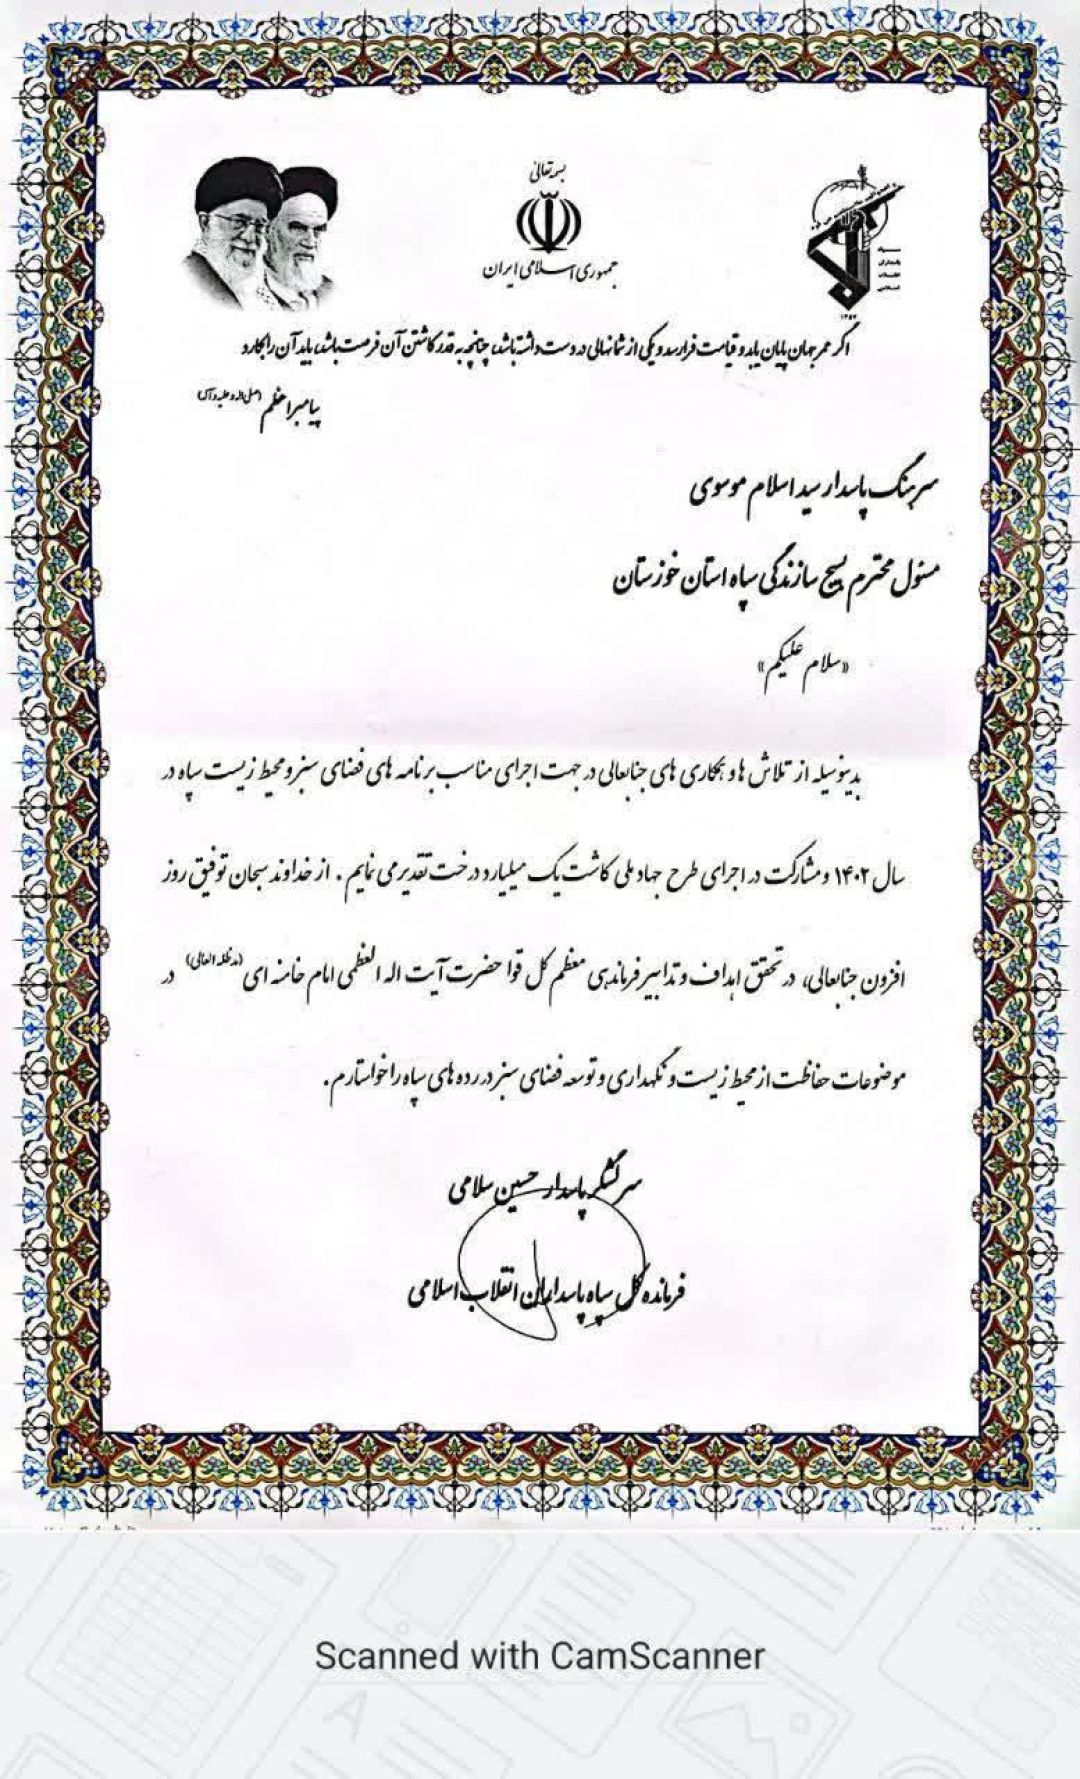 بسمه تعالی
جمهوری اسلامی ایران
سپاه
پاسداران
انقلاب
اسلامی
۱۳۵۷
اگر عمر جهان پایان یابد و قیامت فرا رسد و یکی از شما نهالی در دست داشته باشد، چنانچه به قدر کاشتن آن فرصت باشد، باید آن را بکارد
پیامبر اعظم (صلی الله و علیه و آله)
سرهنگ پاسدار سید اسلام موسوی
مسئول محترم بسیج سازندگی سپاه استان خوزستان
«سلام علیکم»
بدینوسیله از تلاش ها و همکاری های جنابعالی در جهت اجرای مناسب برنامه های فضای سبز و محیط زیست سپاه در
سال ۱۴۰۲ و مشارکت در اجرای طرح جهاد ملی کاشت یک میلیارد درخت تقدیر می نمایم. از خداوند سبحان توفیق روز
افزون جنابعالی، در تحقق اهداف و تدابیر فرماندهی معظم کل قوا حضرت آیت اله العظمی امام خامنه ای (مدظله العالی) در
موضوعات حفاظت از محیط زیست و نگهداری و توسعه فضای سبز در رده های سپاه را خواستارم.
سرلشکر پاسدار حسین سلامی
فرمانده کل سپاه پاسداران انقلاب اسلامی
Scanned with CamScanner